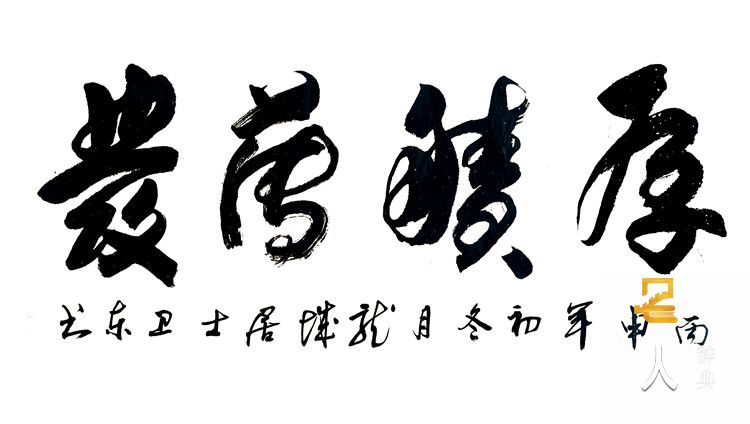 厚積薄發
丙申年初冬月龍城居士卫东书
匠人
辞典